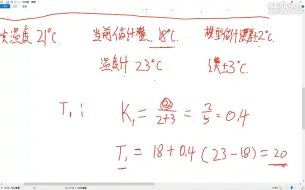 温度 21°C. 当前估计量 18°C 模型估计误差±2°C.
温度计 23°C 误差±3°C
T₁: K₁ = ②/2+3 = 2/5 = 0.4
T₁ = 18 + 0.4 (23 - 18) = 20